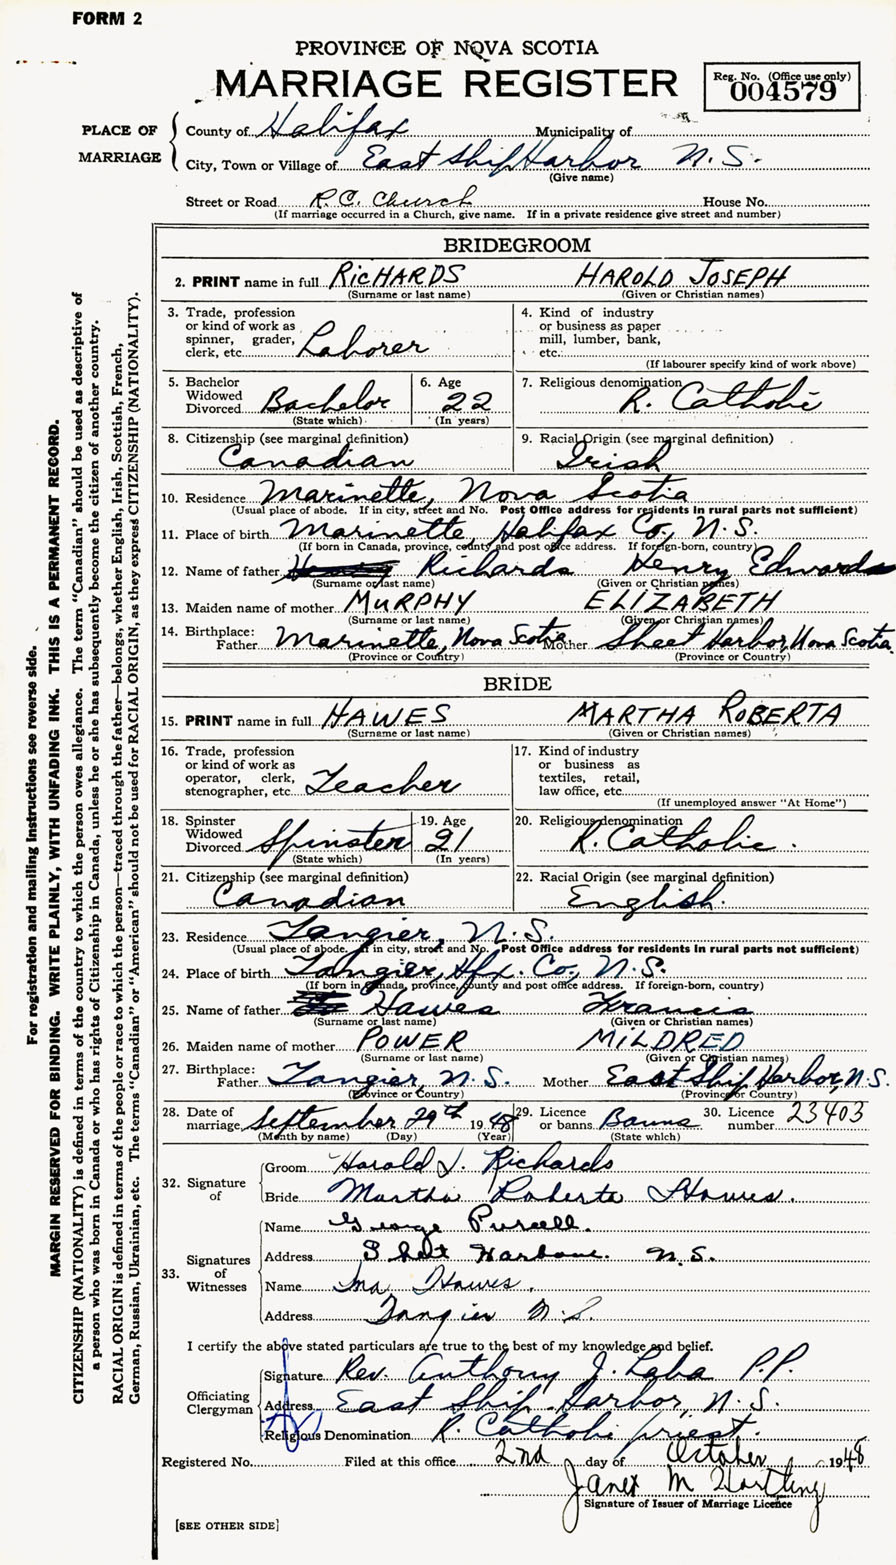 FORM 2
PROVINCE OF NOVA SCOTIA
MARRIAGE REGISTER
Reg. No. (Office use only)
004579
PLACE OF MARRIAGE
County of Halifax Municipality of
City, Town or Village of East Ship Harbor N.S.
(Give name)
Street or Road R.C. Church House No.
(If marriage occurred in a Church, give name. If in a private residence give street and number)
BRIDEGROOM
2. PRINT name in full RICHARDS HAROLD JOSEPH
(Surname or last name) (Given or Christian names)
3. Trade, profession or kind of work as spinner, grader, clerk, etc. Laborer
4. Kind of industry or business as paper mill, lumber, bank, etc.
(If labourer specify kind of work above)
5. Bachelor Widowed Divorced Bachelor (State which)
6. Age 22 (In years)
7. Religious denomination R. Catholic
8. Citizenship (see marginal definition) Canadian
9. Racial Origin (see marginal definition) Irish
10. Residence Marinette, Nova Scotia
(Usual place of abode. If in city, street and No. Post Office address for residents in rural parts not sufficient)
11. Place of birth Marinette, Halifax Co., N.S.
(If born in Canada, province, county and post office address. If foreign-born, country)
12. Name of father Richards Henry Edwards
(Surname or last name) (Given or Christian names)
13. Maiden name of mother MURPHY ELIZABETH
(Surname or last name) (Given or Christian names)
14. Birthplace: Father Marinette, Nova Scotia Mother Sheet Harbor, Nova Scotia
(Province or Country) (Province or Country)
BRIDE
15. PRINT name in full HAWES MARTHA ROBERTA
(Surname or last name) (Given or Christian names)
16. Trade, profession or kind of work as operator, clerk, stenographer, etc. Teacher
17. Kind of industry or business as textiles, retail, law office, etc.
(If unemployed answer "At Home")
18. Spinster Widowed Divorced Spinster (State which)
19. Age 21 (In years)
20. Religious denomination R. Catholic.
21. Citizenship (see marginal definition) Canadian
22. Racial Origin (see marginal definition) English.
23. Residence Tangier, N.S.
(Usual place of abode. If in city, street and No. Post Office address for residents in rural parts not sufficient)
24. Place of birth Tangier, Hfx. Co., N.S.
(If born in Canada, province, county and post office address. If foreign-born, country)
25. Name of father Hawes Francis
(Surname or last name) (Given or Christian names)
26. Maiden name of mother POWER MILDRED
(Surname or last name) (Given or Christian names)
27. Birthplace: Father Tangier, N.S. Mother East Ship Harbor, N.S.
(Province or Country) (Province or Country)
28. Date of marriage September 29th 1948 29. Licence or banns Banns 30. Licence number 23403
(Month by name) (Day) (Year) (State which)
32. Signature of
Groom Harold J. Richards
Bride Martha Roberta Hawes.
33. Signatures of Witnesses
Name George Purcell.
Address Sheet Harbour. N.S.
Name Ina Hawes.
Address Tangier N.S.
I certify the above stated particulars are true to the best of my knowledge and belief.
Officiating Clergyman
Signature Rev. Anthony J. Laba P.P.
Address East Ship Harbor, N.S.
Religious Denomination R. Catholic priest.
Registered No. Filed at this office 2nd day of October 1948
Janet M Hartling
Signature of Issuer of Marriage Licence
[SEE OTHER SIDE]
For registration and mailing instructions see reverse side.
MARGIN RESERVED FOR BINDING. WRITE PLAINLY, WITH UNFADING INK. THIS IS A PERMANENT RECORD.
CITIZENSHIP (NATIONALITY) is defined in terms of the country to which the person owes allegiance. The term "Canadian" should be used as descriptive of
a person who was born in Canada or who has rights of Citizenship in Canada, unless he or she has subsequently become the citizen of another country.
RACIAL ORIGIN is defined in terms of the people or race to which the person—traced through the father—belongs, whether English, Irish, Scottish, French,
German, Russian, Ukrainian, etc. The terms "Canadian" or "American" should not be used for RACIAL ORIGIN, as they express CITIZENSHIP (NATIONALITY).